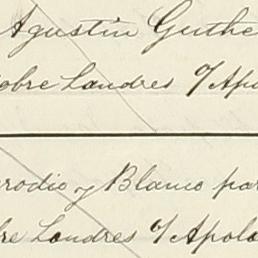 Agustin Guthe
obre Landres %Apo
rodio y Blanco par
re Londres %Apolo